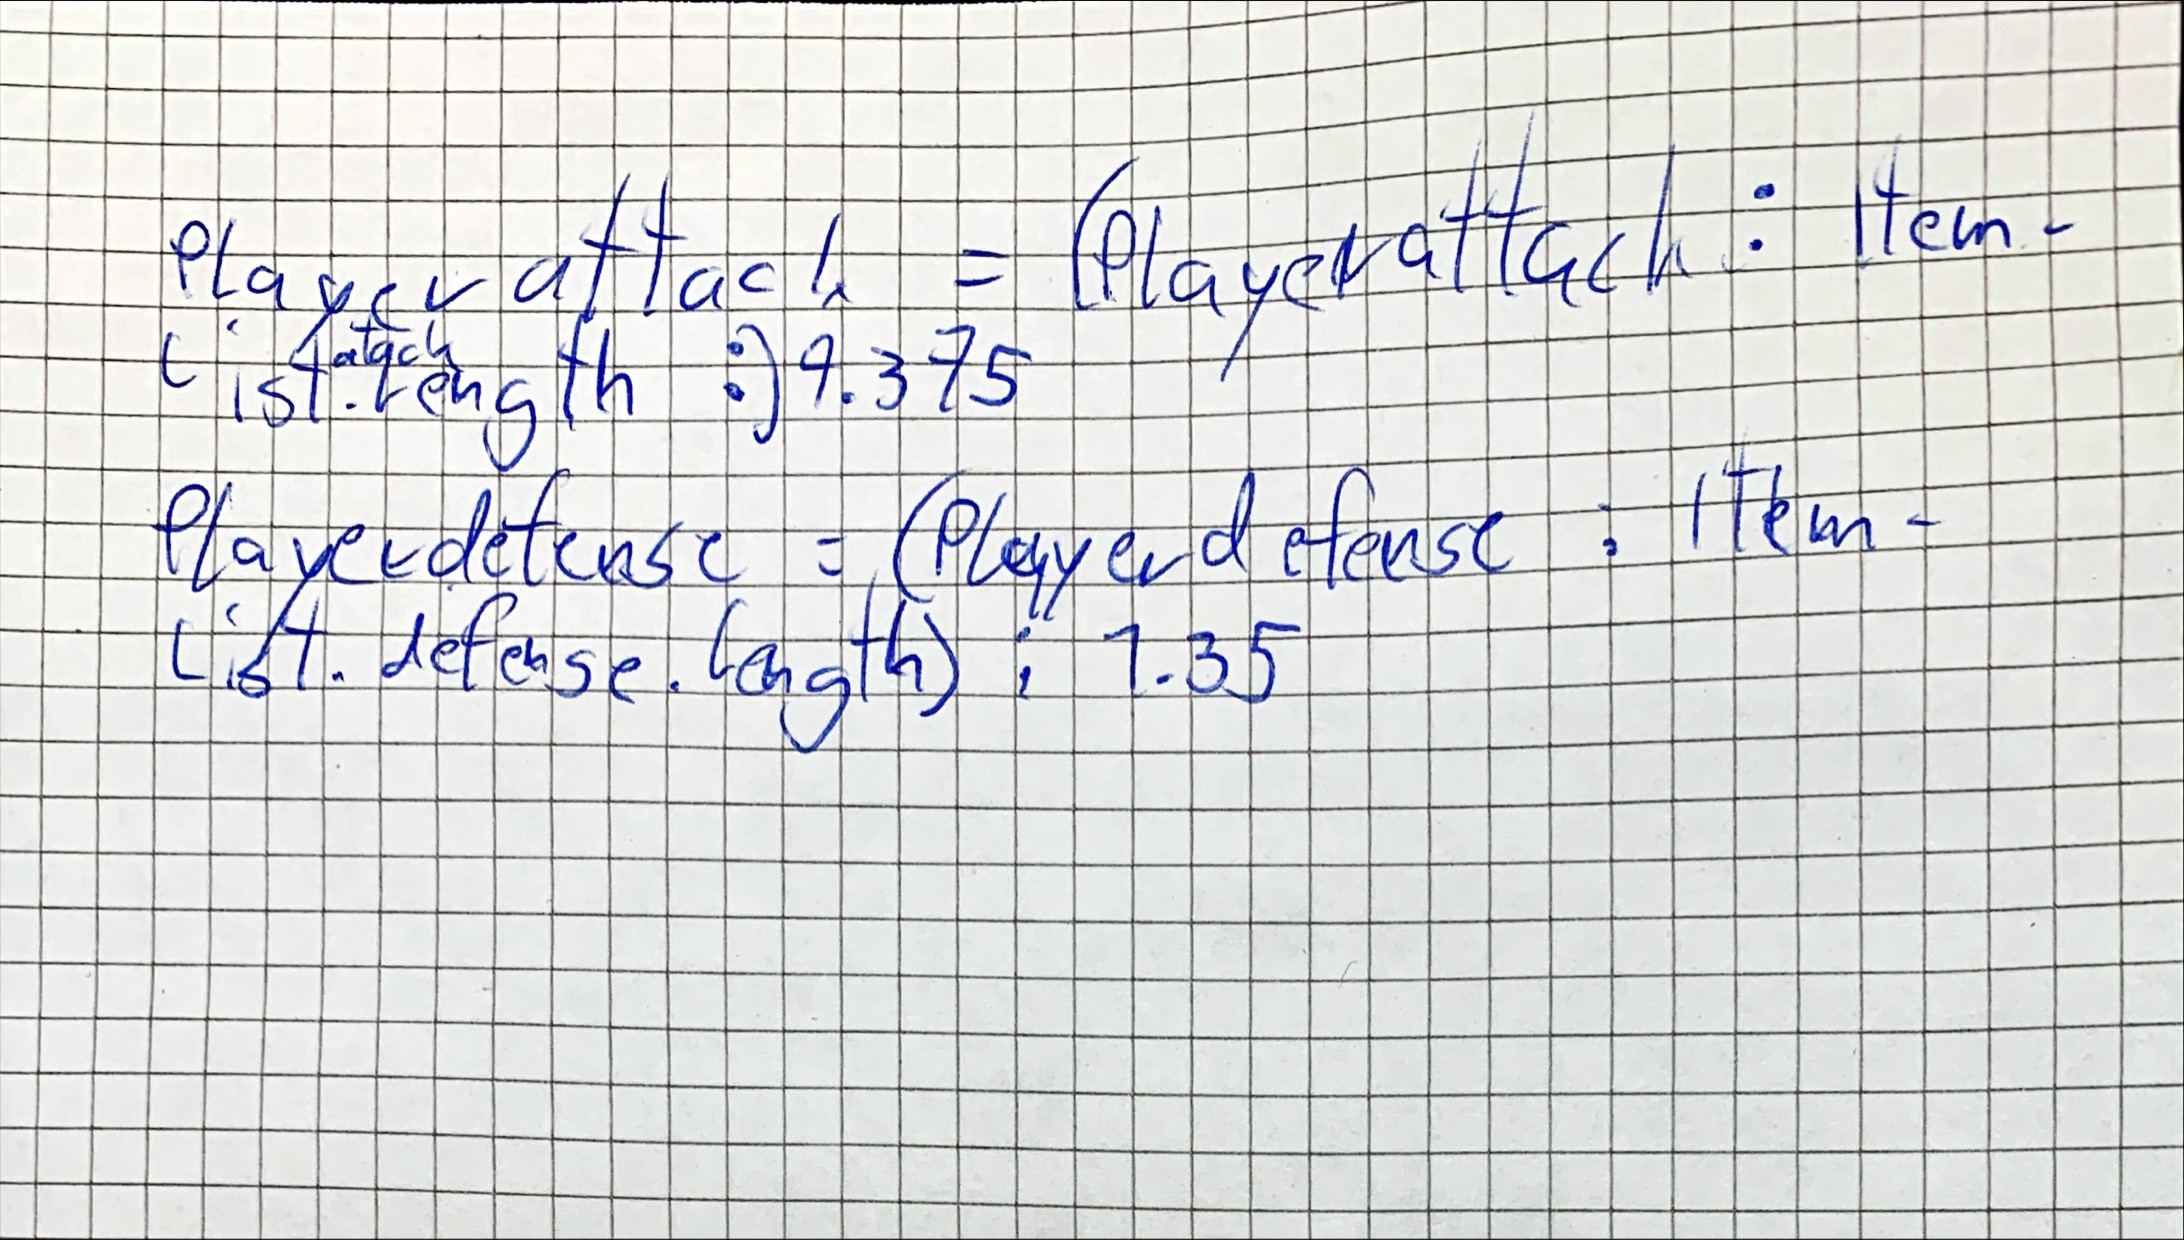 Player attack = (Playerattack : Item-
List.attack.length :) 1.375
Playerdefense = (Playerdefense : Item-
List.defense.length) : 1.35